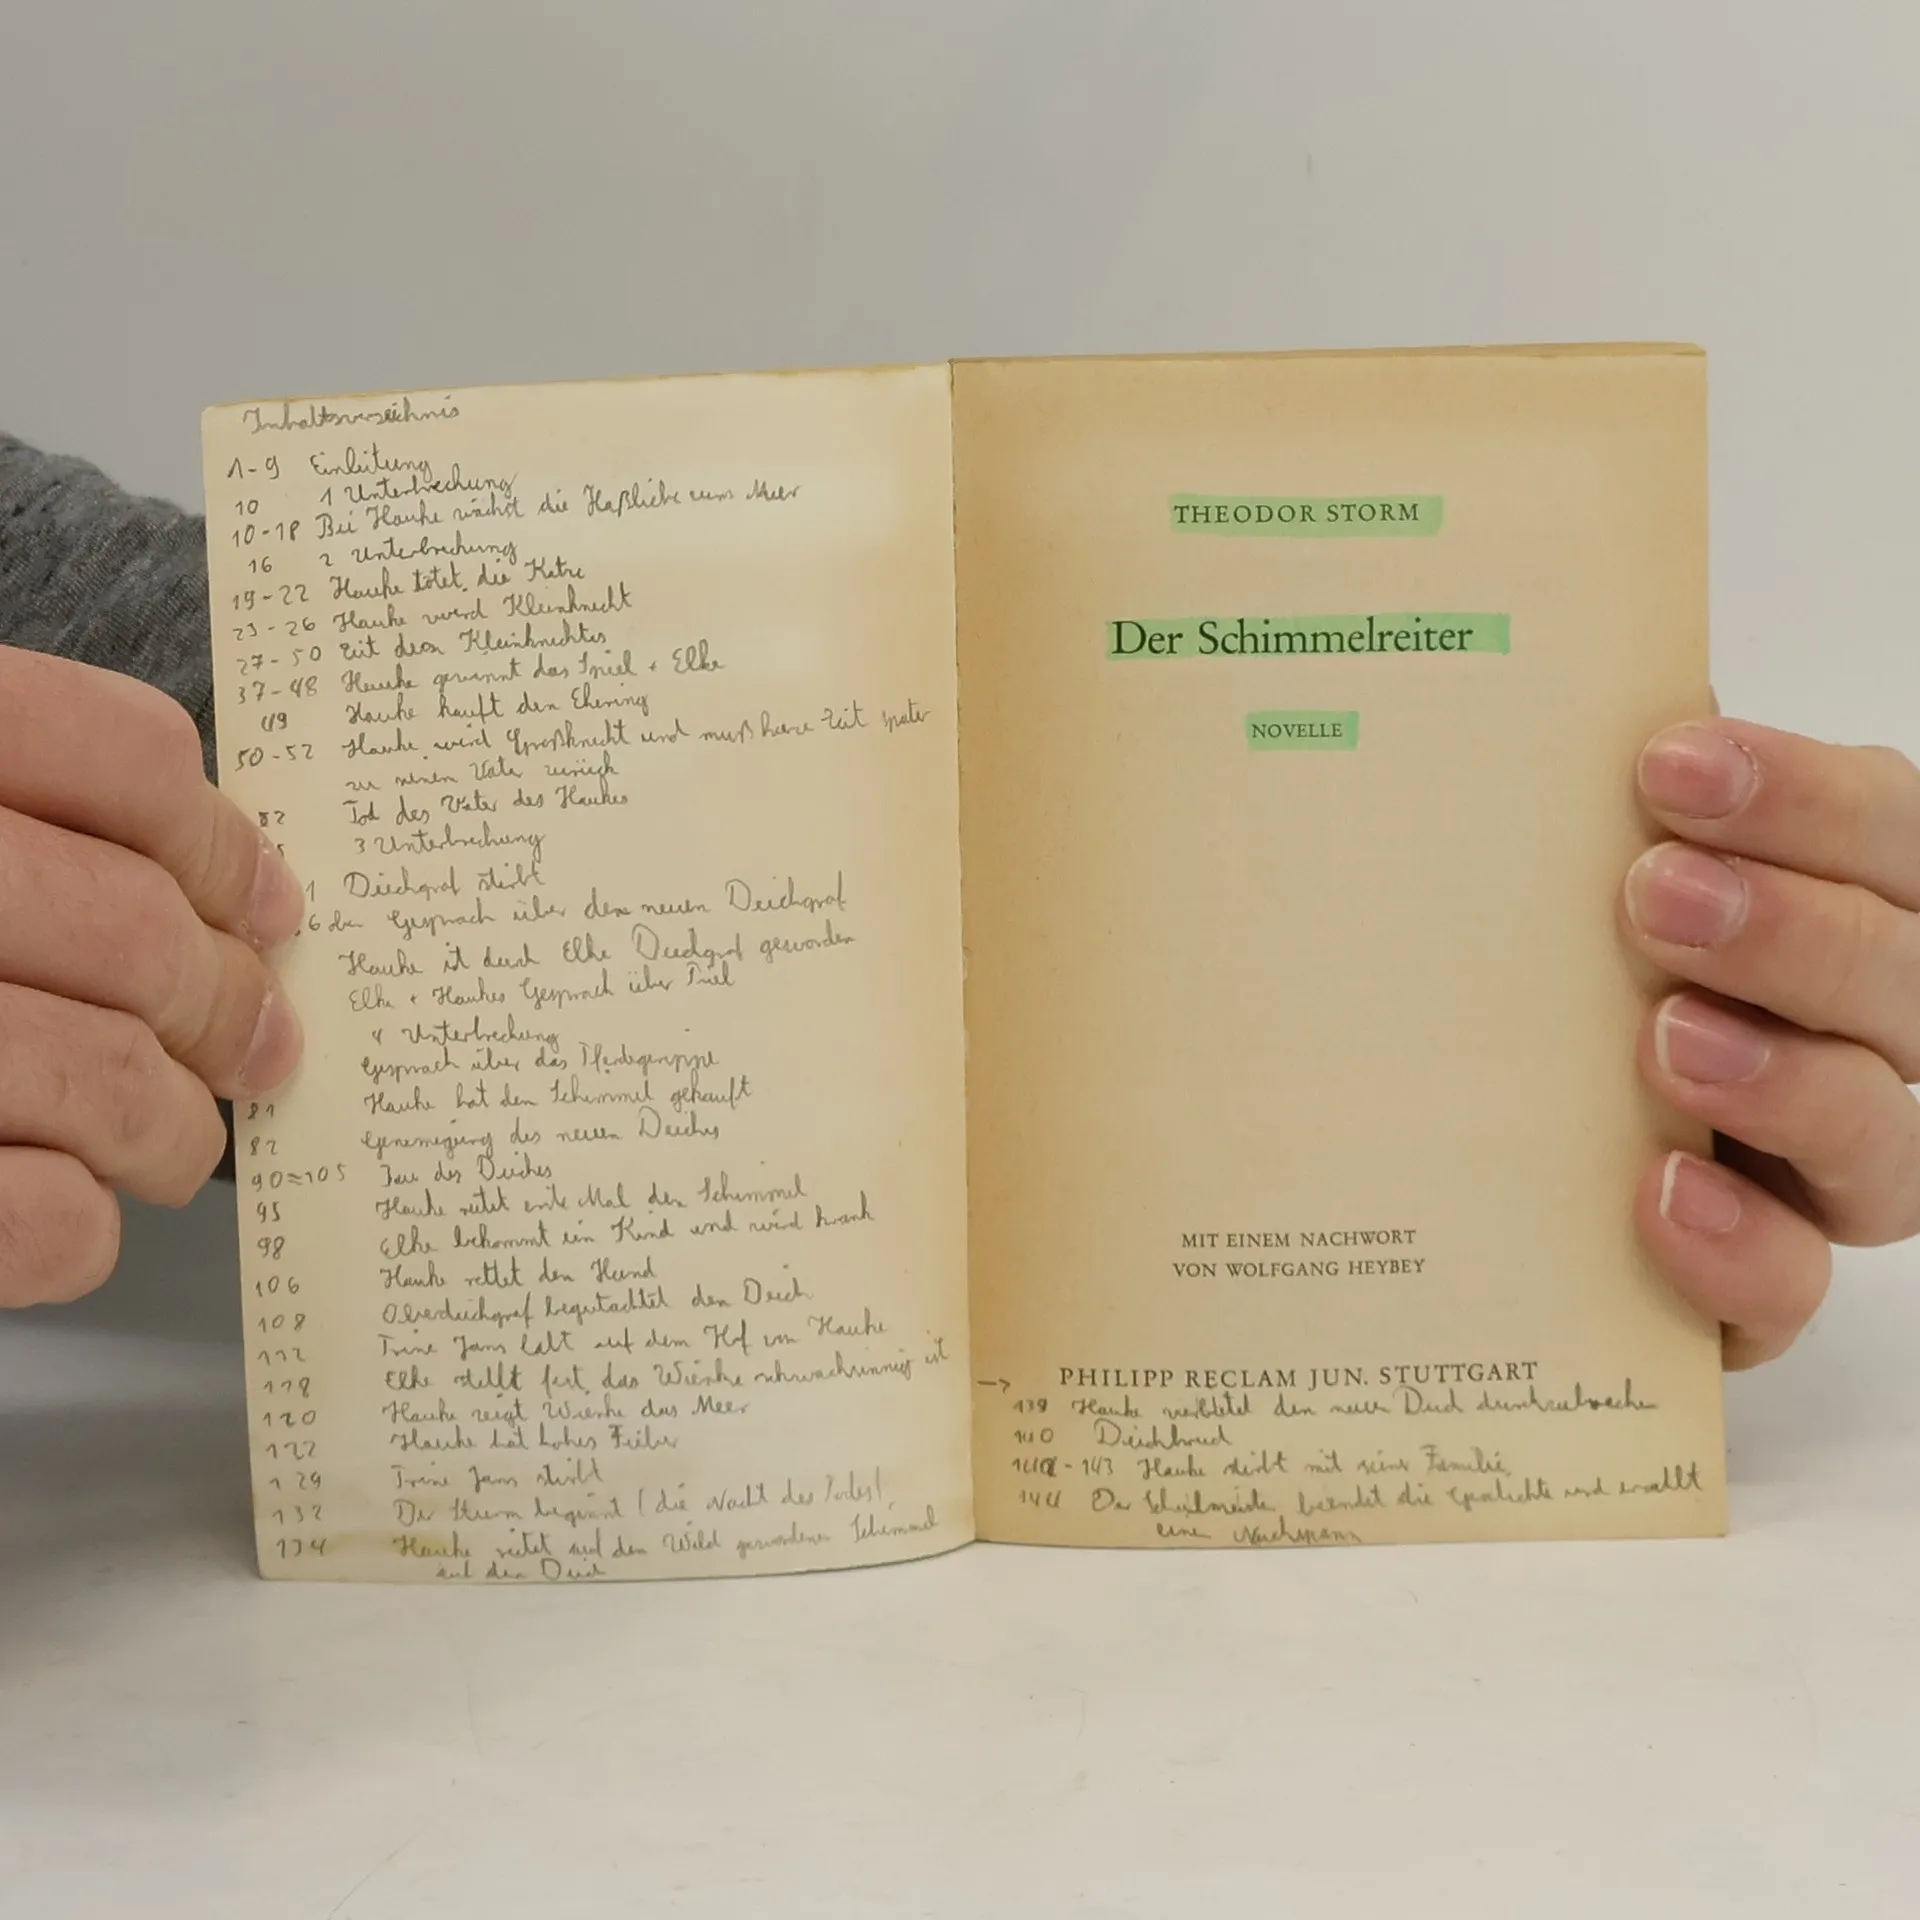 Inhaltsverzeichnis
1-9 Einleitung
10 1 Unterbrechung
10-18 Bei Hauke wächst die Haßliebe zum Meer
16 2 Unterbrechung
19-22 Hauke tötet die Katze
23-26 Hauke wird Kleinknecht
27-50 Zeit des Kleinknechtes
37-48 Hauke gewinnt das Spiel + Elke
49 Hauke kauft den Ehering
50-52 Hauke wird Großknecht und muß kurze Zeit später
zu seinem Vater zurück
52 Tod des Vater des Haukes
3 Unterbrechung
1 Deichgraf stirbt
6 oben Gespräch über den neuen Deichgraf
Hauke ist durch Elke Deichgraf geworden
Elke + Haukes Gespräch über Ziel
4 Unterbrechung
Gespräch über das Pferdegerippe
81 Hauke hat den Schimmel gekauft
82 Genemigung des neuen Deiches
90-105 Bau des Deiches
95 Hauke reitet erste Mal den Schimmel
98 Elke bekommt ein Kind und wird krank
106 Hauke rettet den Hund
108 Oberdeichgraf begutachtet den Deich
112 Trine Jans lebt auf dem Hof von Hauke
118 Elke stellt fest, das Wienke schwachsinnig ist
120 Hauke zeigt Wienke das Meer
122 Hauke hat hohes Fieber
129 Trine Jans stirbt
132 Der Sturm beginnt (die Nacht des Todes)
134 Hauke reitet auf den Wild gewordenen Schimmel
auf den Deich
THEODOR STORM
Der Schimmelreiter
NOVELLE
MIT EINEM NACHWORT
VON WOLFGANG HEYBEY
→ PHILIPP RECLAM JUN. STUTTGART
139 Hauke verbietet den neuen Deich durchzubrechen
140 Deichbruch
-143 Hauke stirbt mit seiner Familie
144 Der Schulmeister beendet die Geschichte und erzählt
eine